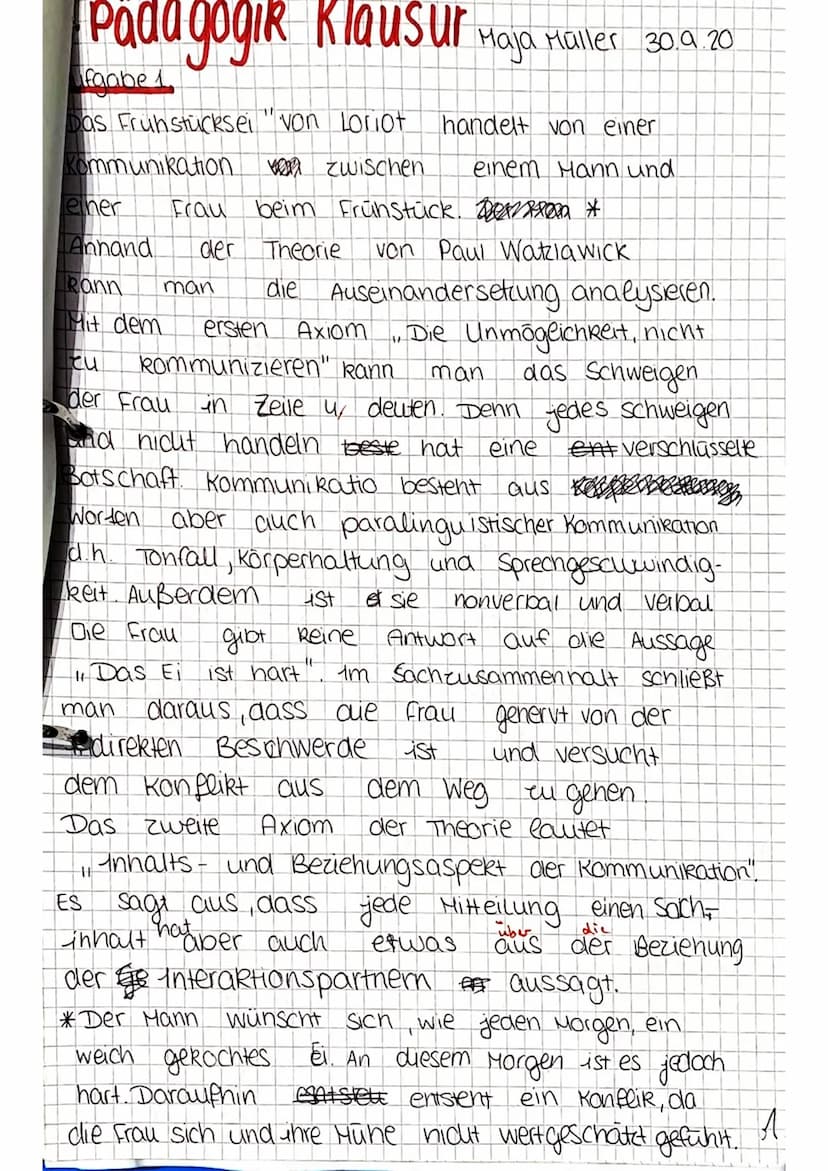 Pädagogik Klausur Maja Müller 30.9.20
ufgabe 1
Das Frühstücksei" von Loriot handelt von einer
Kommunikation zwischen einem Mann und
einer Frau beim Frühstück. *
Anhand der Theorie von Paul Watzlawick
kann man die Auseinandersetzung analysieren.
Mit dem ersten Axiom „Die Unmöglichkeit, nicht
zu kommunizieren" kann man das Schweigen
der Frau in Zeile 4, deuten. Denn jedes schweigen
und nicht handeln beste hat eine ent verschlüsselte
Botschaft. Kommunikatio besteht aus
Worten aber auch paralinguistischer Kommunikation
d.h. Tonfall, Körperhaltung und Sprechgeschwindig-
keit. Außerdem ist sie nonverbal und verbal
Die Frau gibt keine Antwort auf die Aussage
„Das Ei ist hart". Im Sachzusammenhalt schließt
man daraus, dass die Frau genervt von der
direkten Beschwerde ist und versucht
dem Konflikt aus dem Weg zu gehen.
Das zweite Axiom der Theorie lautet
„Inhalts- und Beziehungsaspekt der Kommunikation".
Es sagt aus, dass jede Mitteilung einen Sach-
inhalt hat aber auch etwas aus über der die Beziehung
der Interaktionspartnern aussagt.
* Der Mann wünscht sich, wie jeden Morgen, ein
weich gekochtes Ei. An diesem Morgen ist es jedoch
hart. Daraufhin entsteht ein Konflik, da
die Frau sich und ihre Mühe nicht wertgeschätzt gefühlt. 1